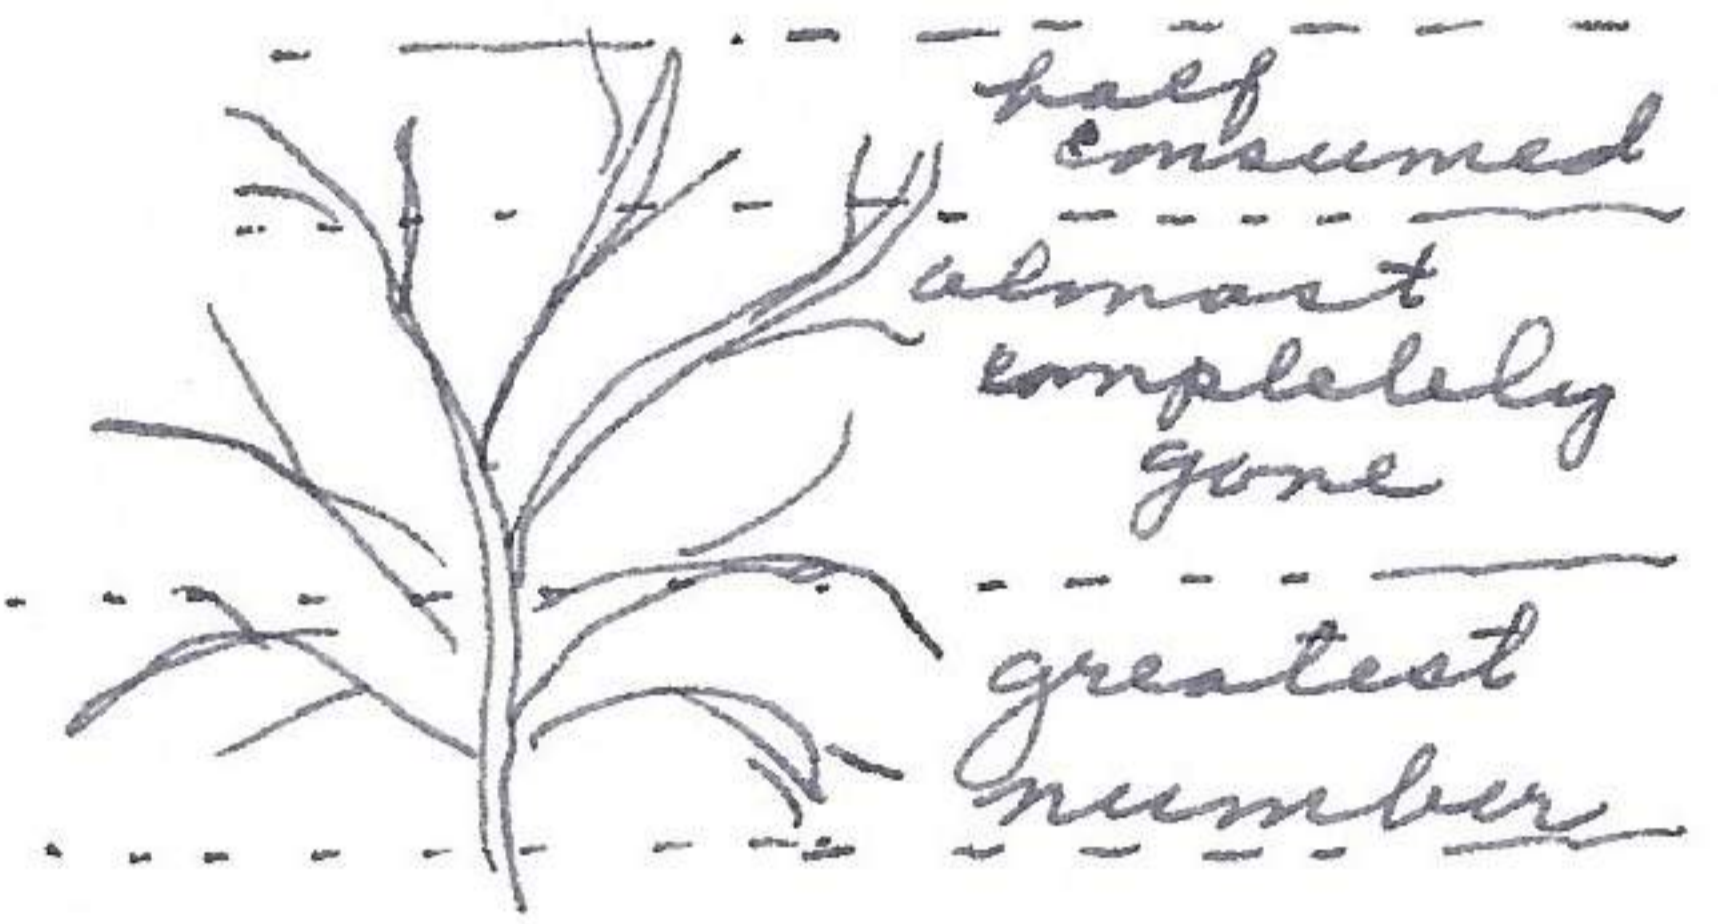 half
consumed
almost
completely
gone
greatest
number